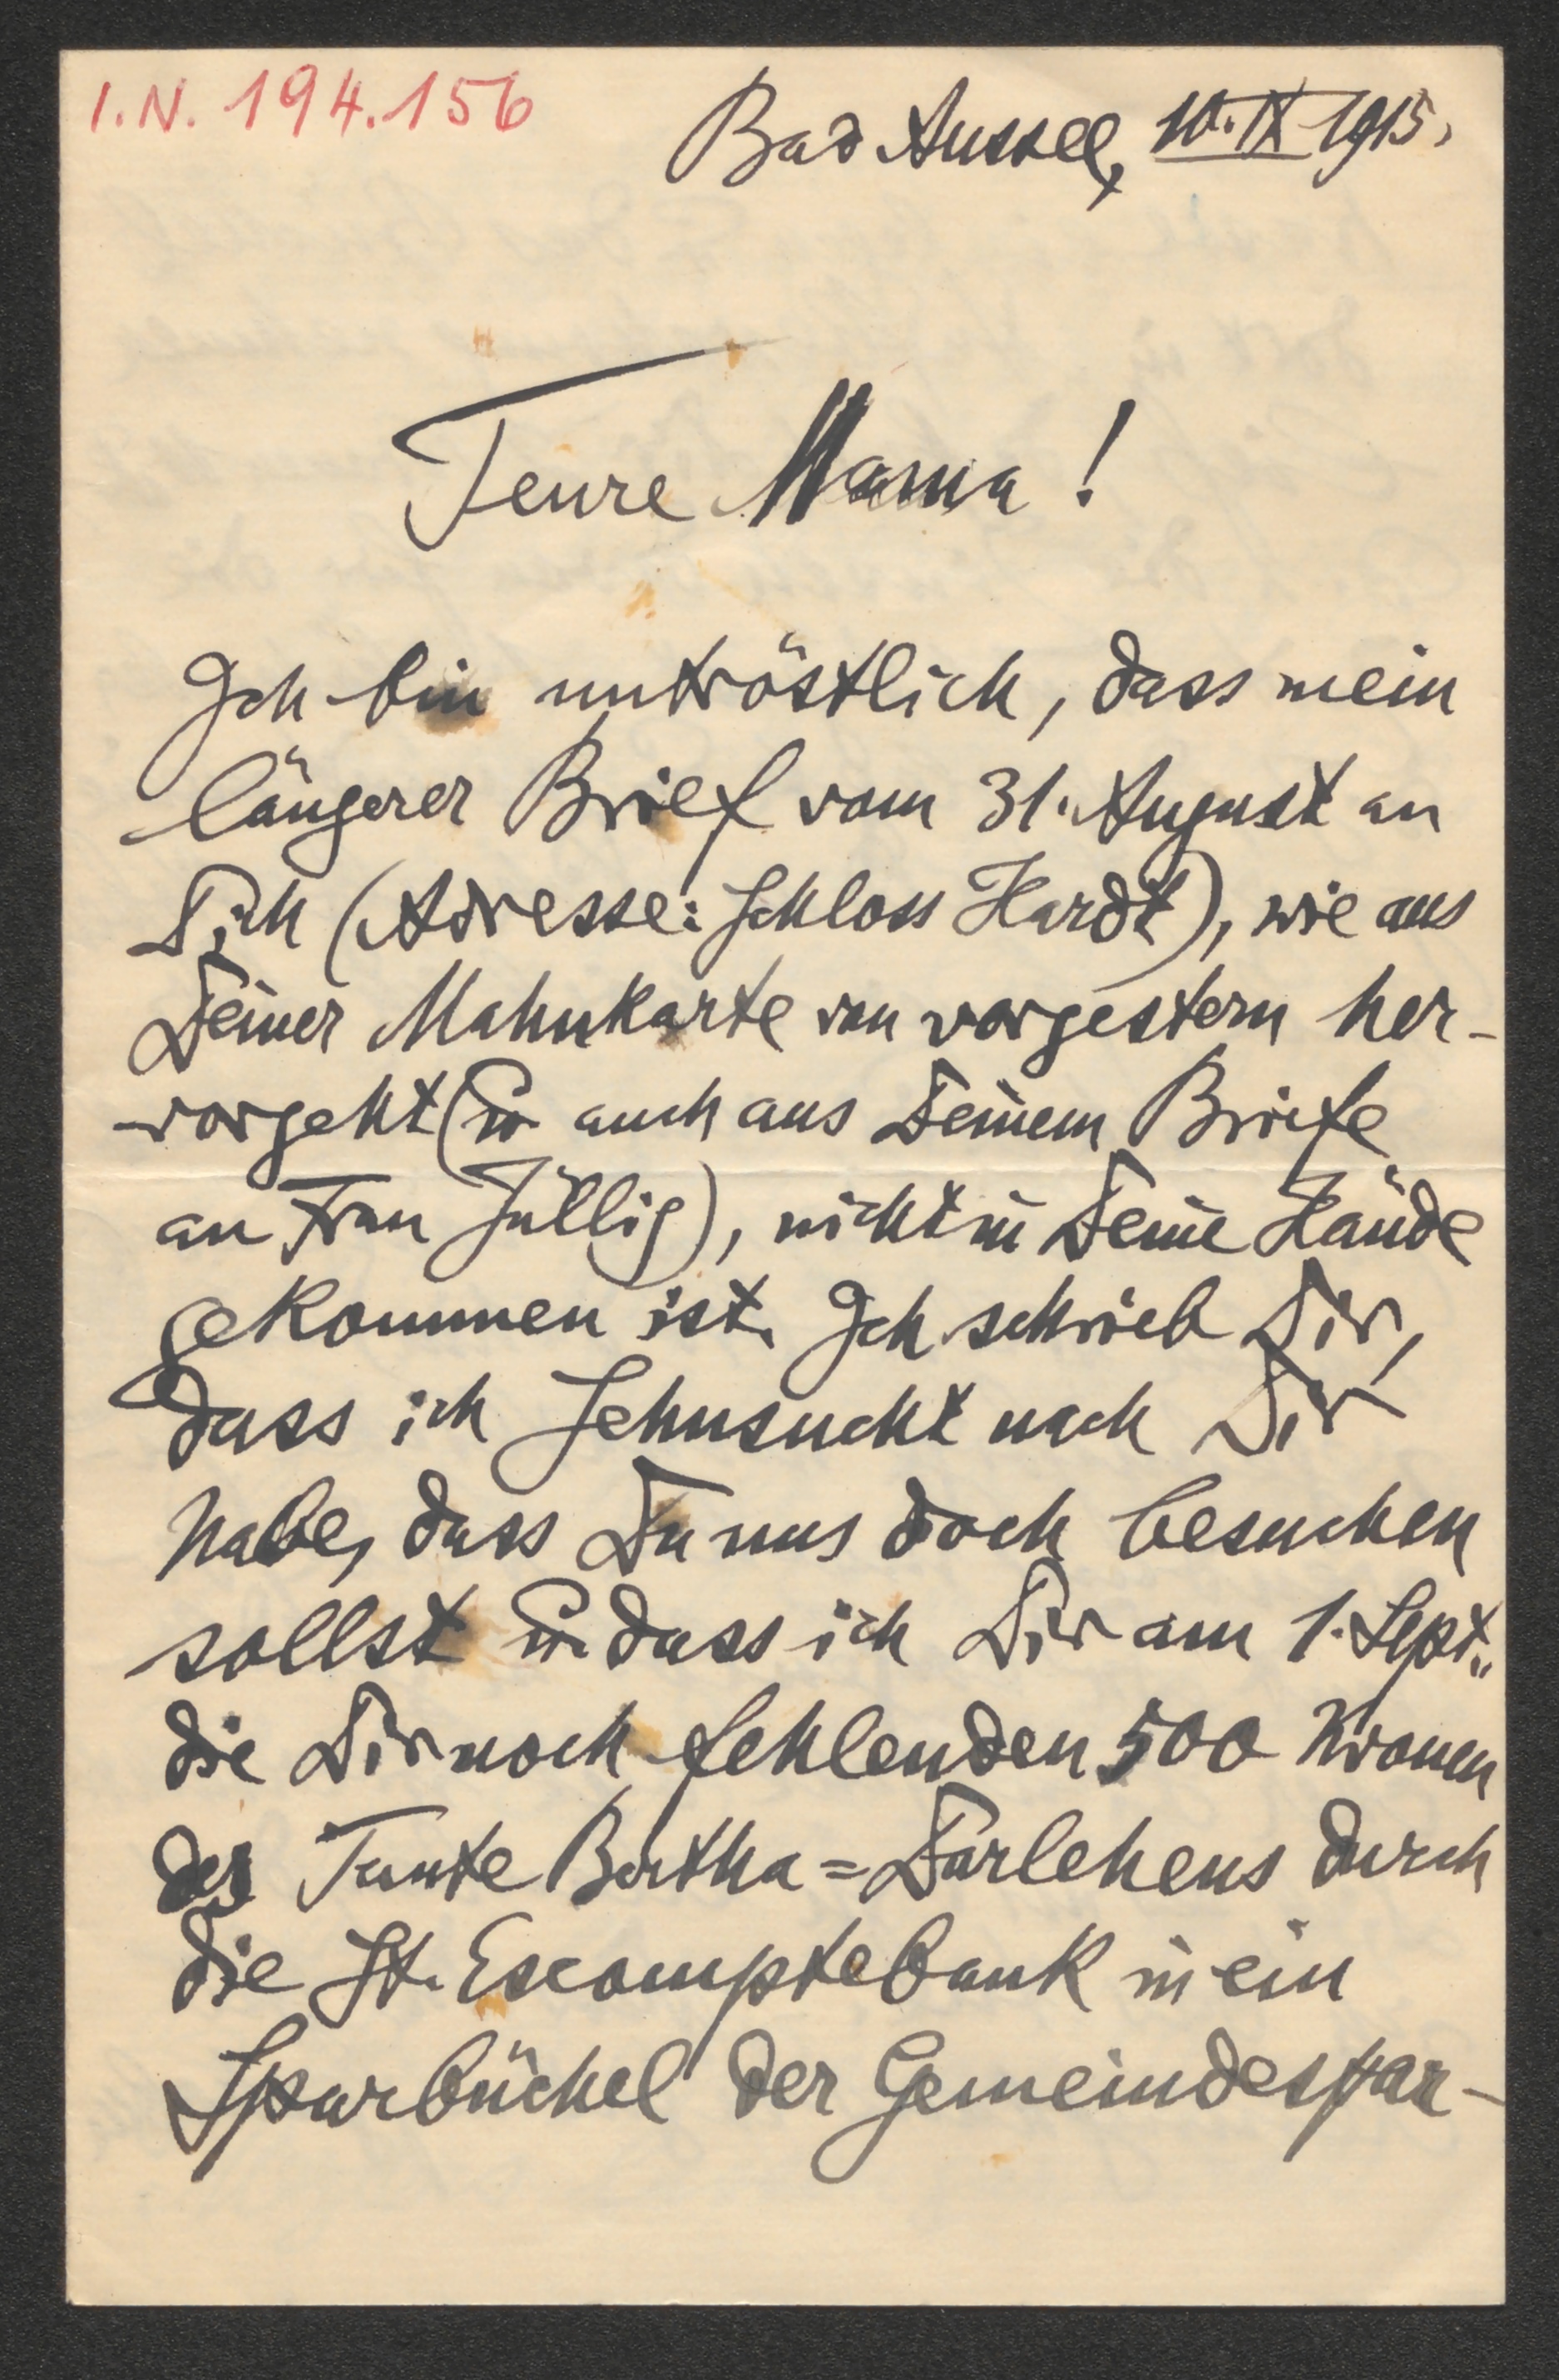 I.N. 194.156
Bad Aussee, 10.IX 1915.
Teure Mama!
Ich bin untröstlich, dass mein
längerer Brief vom 31. August an
Dich (Adresse: Schloss Hardt), wie aus
Deiner Mahnkarte von vorgestern her-
vorgeht (u. auch aus Deinem Briefe
an Frau Jüllig), nicht in Deine Hände
gekommen ist. Ich schrieb Dir,
dass ich Sehnsucht nach Dir
habe, dass Du uns doch besuchen
sollst u. dass ich Dir am 1. Sept.
die Dir noch fehlenden 500 Kronen
des Tante Bertha=Darlehens durch
die St. Escomptebank in ein
Sparbüchel der Gemeindespar-